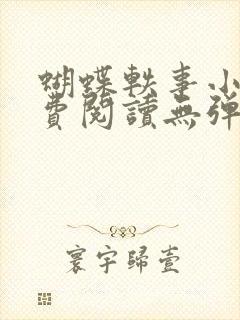 蝴蝶軼事小
費閱讀無彈
寰宇歸壹